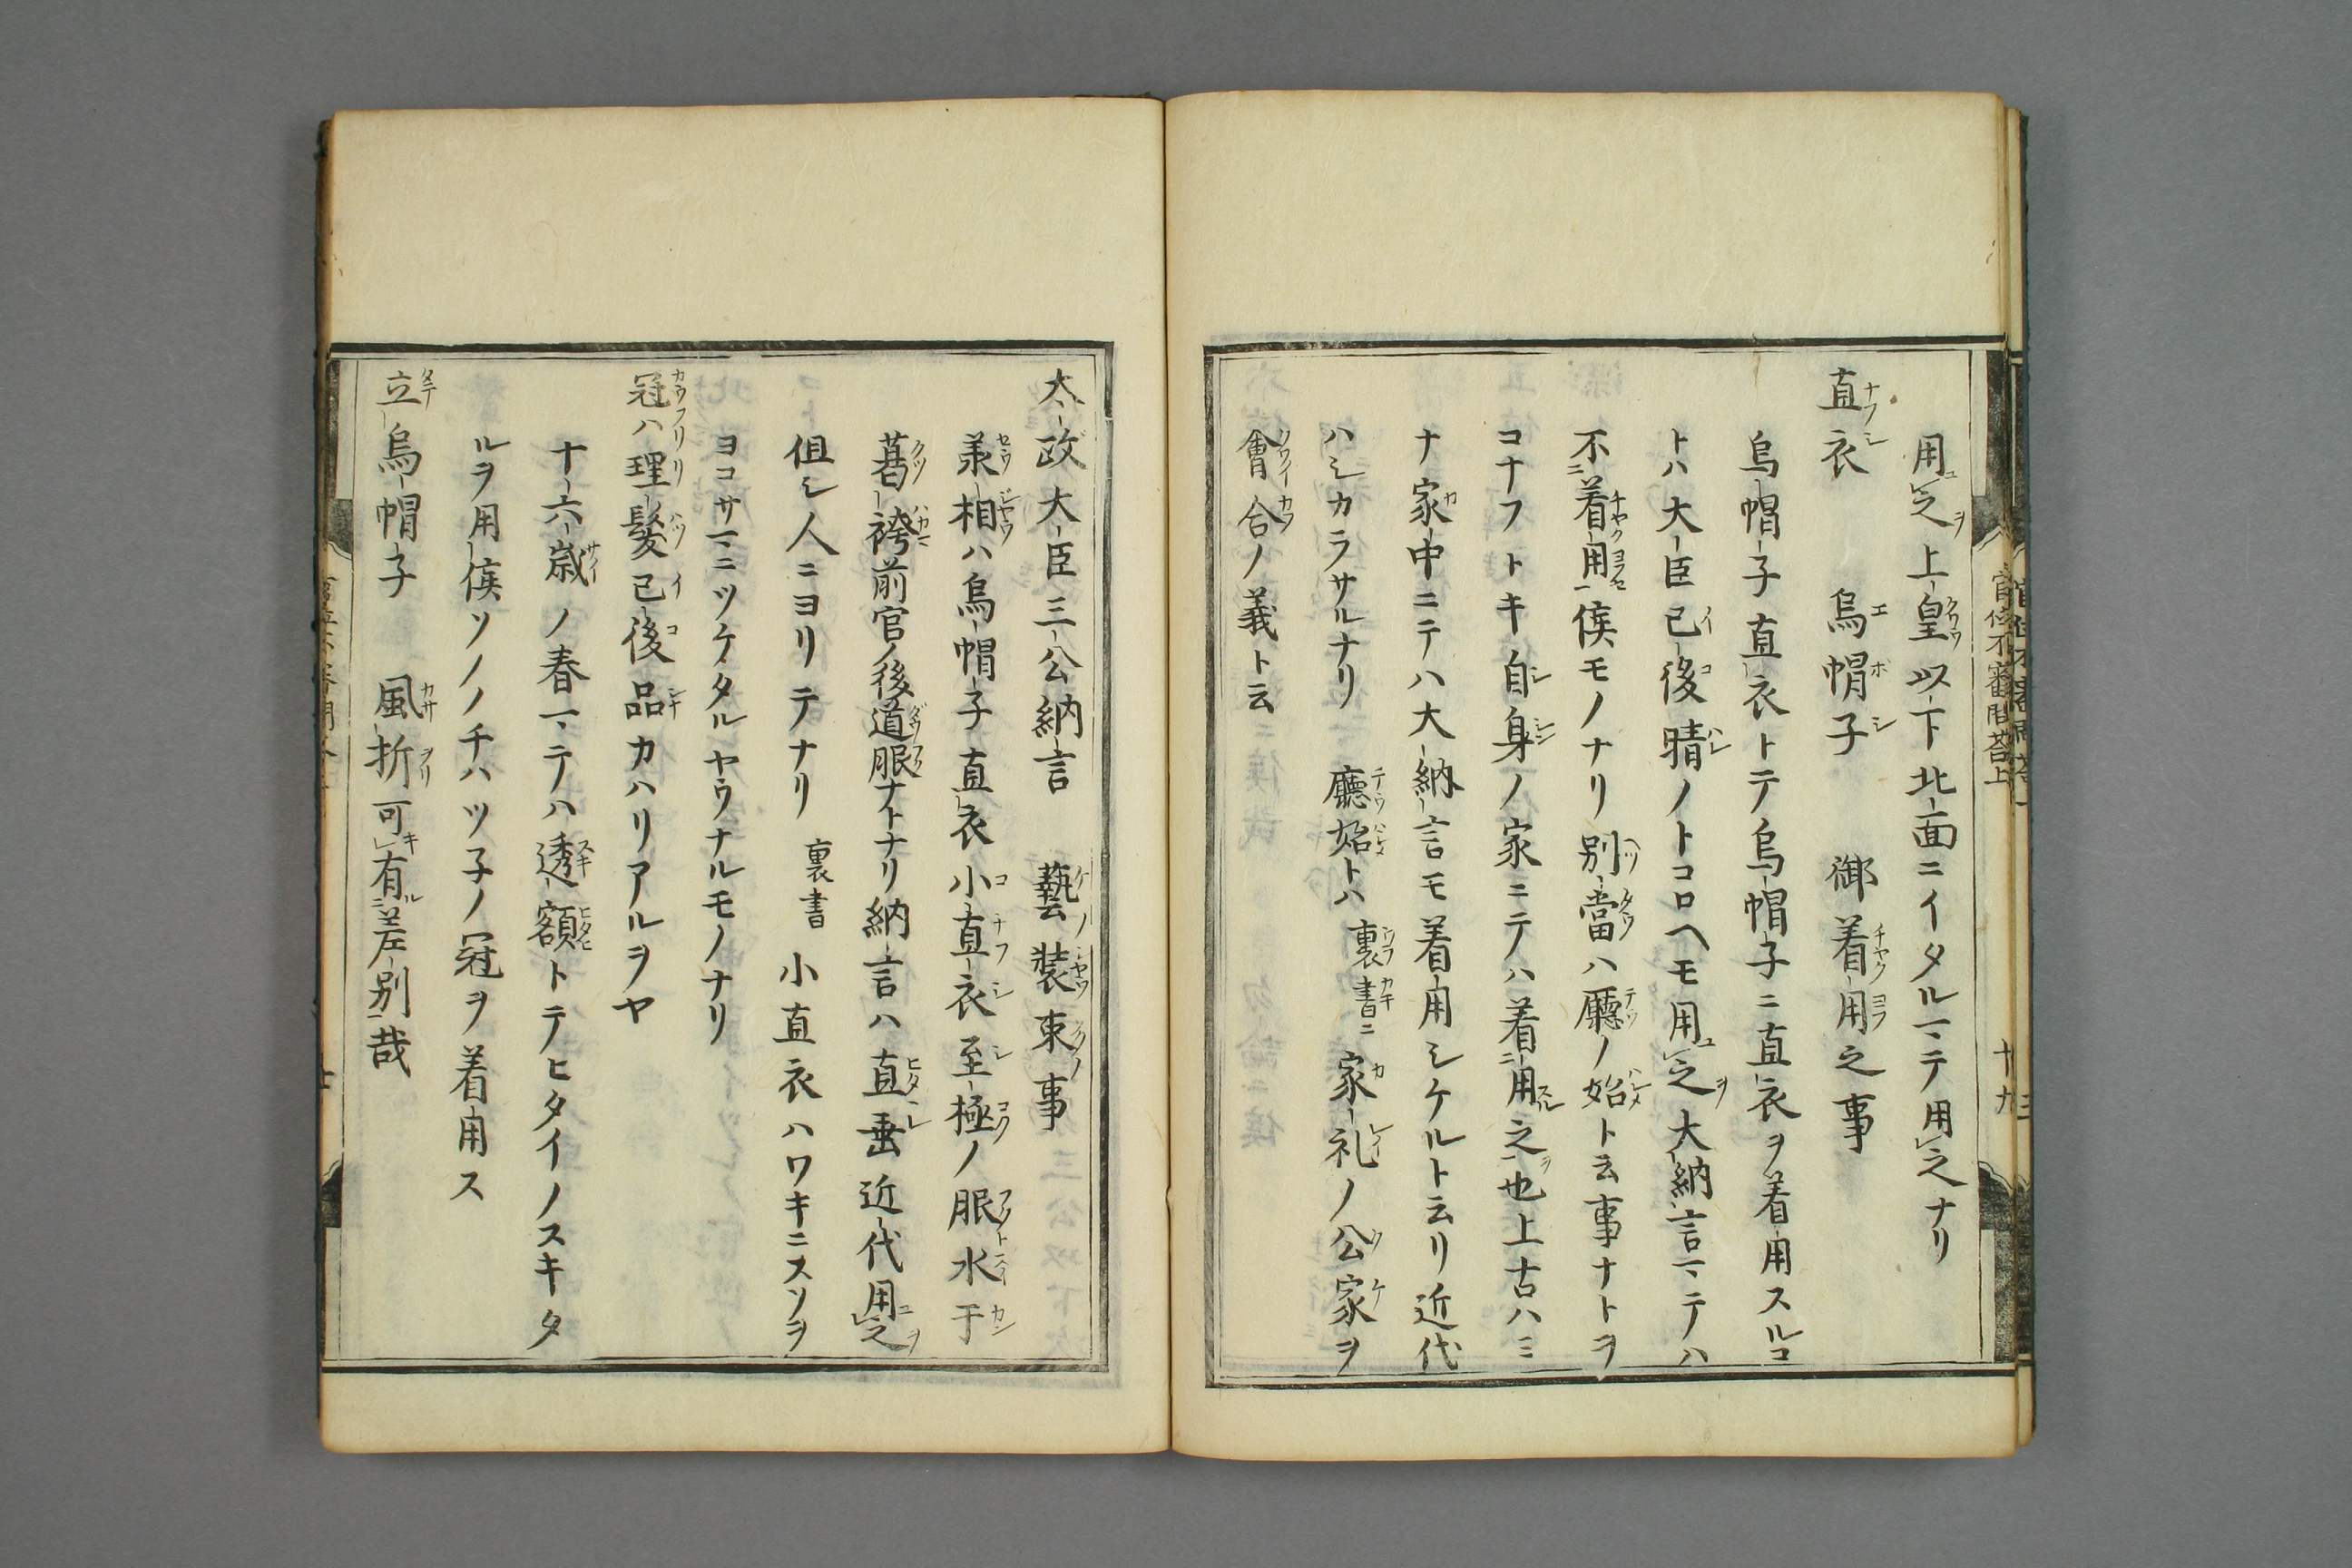 用之上皇以下北面ニイタルマテ用之ナリ
直衣　烏帽子　御着用之事
烏帽子直衣トテ烏帽子ニ直衣ヲ着用スルコ
トハ大臣已後晴ノトコロヘモ用之大納言マテハ
不着用候モノナリ別當ハ廳ノ始ト云事ナトヲ
コナフトキ自身ノ家ニテハ着用之也上古ハミ
ナ家中ニテハ大納言モ着用シケルト云リ近代
ハシカラサルナリ　廳始トハ裏書ニ家礼ノ公家ヲ
會合ノ義ト云
官位不審問荅上　十九
太政大臣三公納言　藝装束事
羕相ハ烏帽子直衣小直衣至極ノ服水干
葛袴前官ノ後道服ナトナリ納言ハ直垂近代用之
但シ人ニヨリテナリ　裏書　小直衣ハワキニスソヲ
ヨコサマニツケタルヤウナルモノナリ
冠ハ理髪已後品カハリアルヲヤ
十六歳ノ春マテハ透額トテヒタイノスキタ
ルヲ用候ソノノチハツ子ノ冠ヲ着用ス
立烏帽子　風折可有差別哉